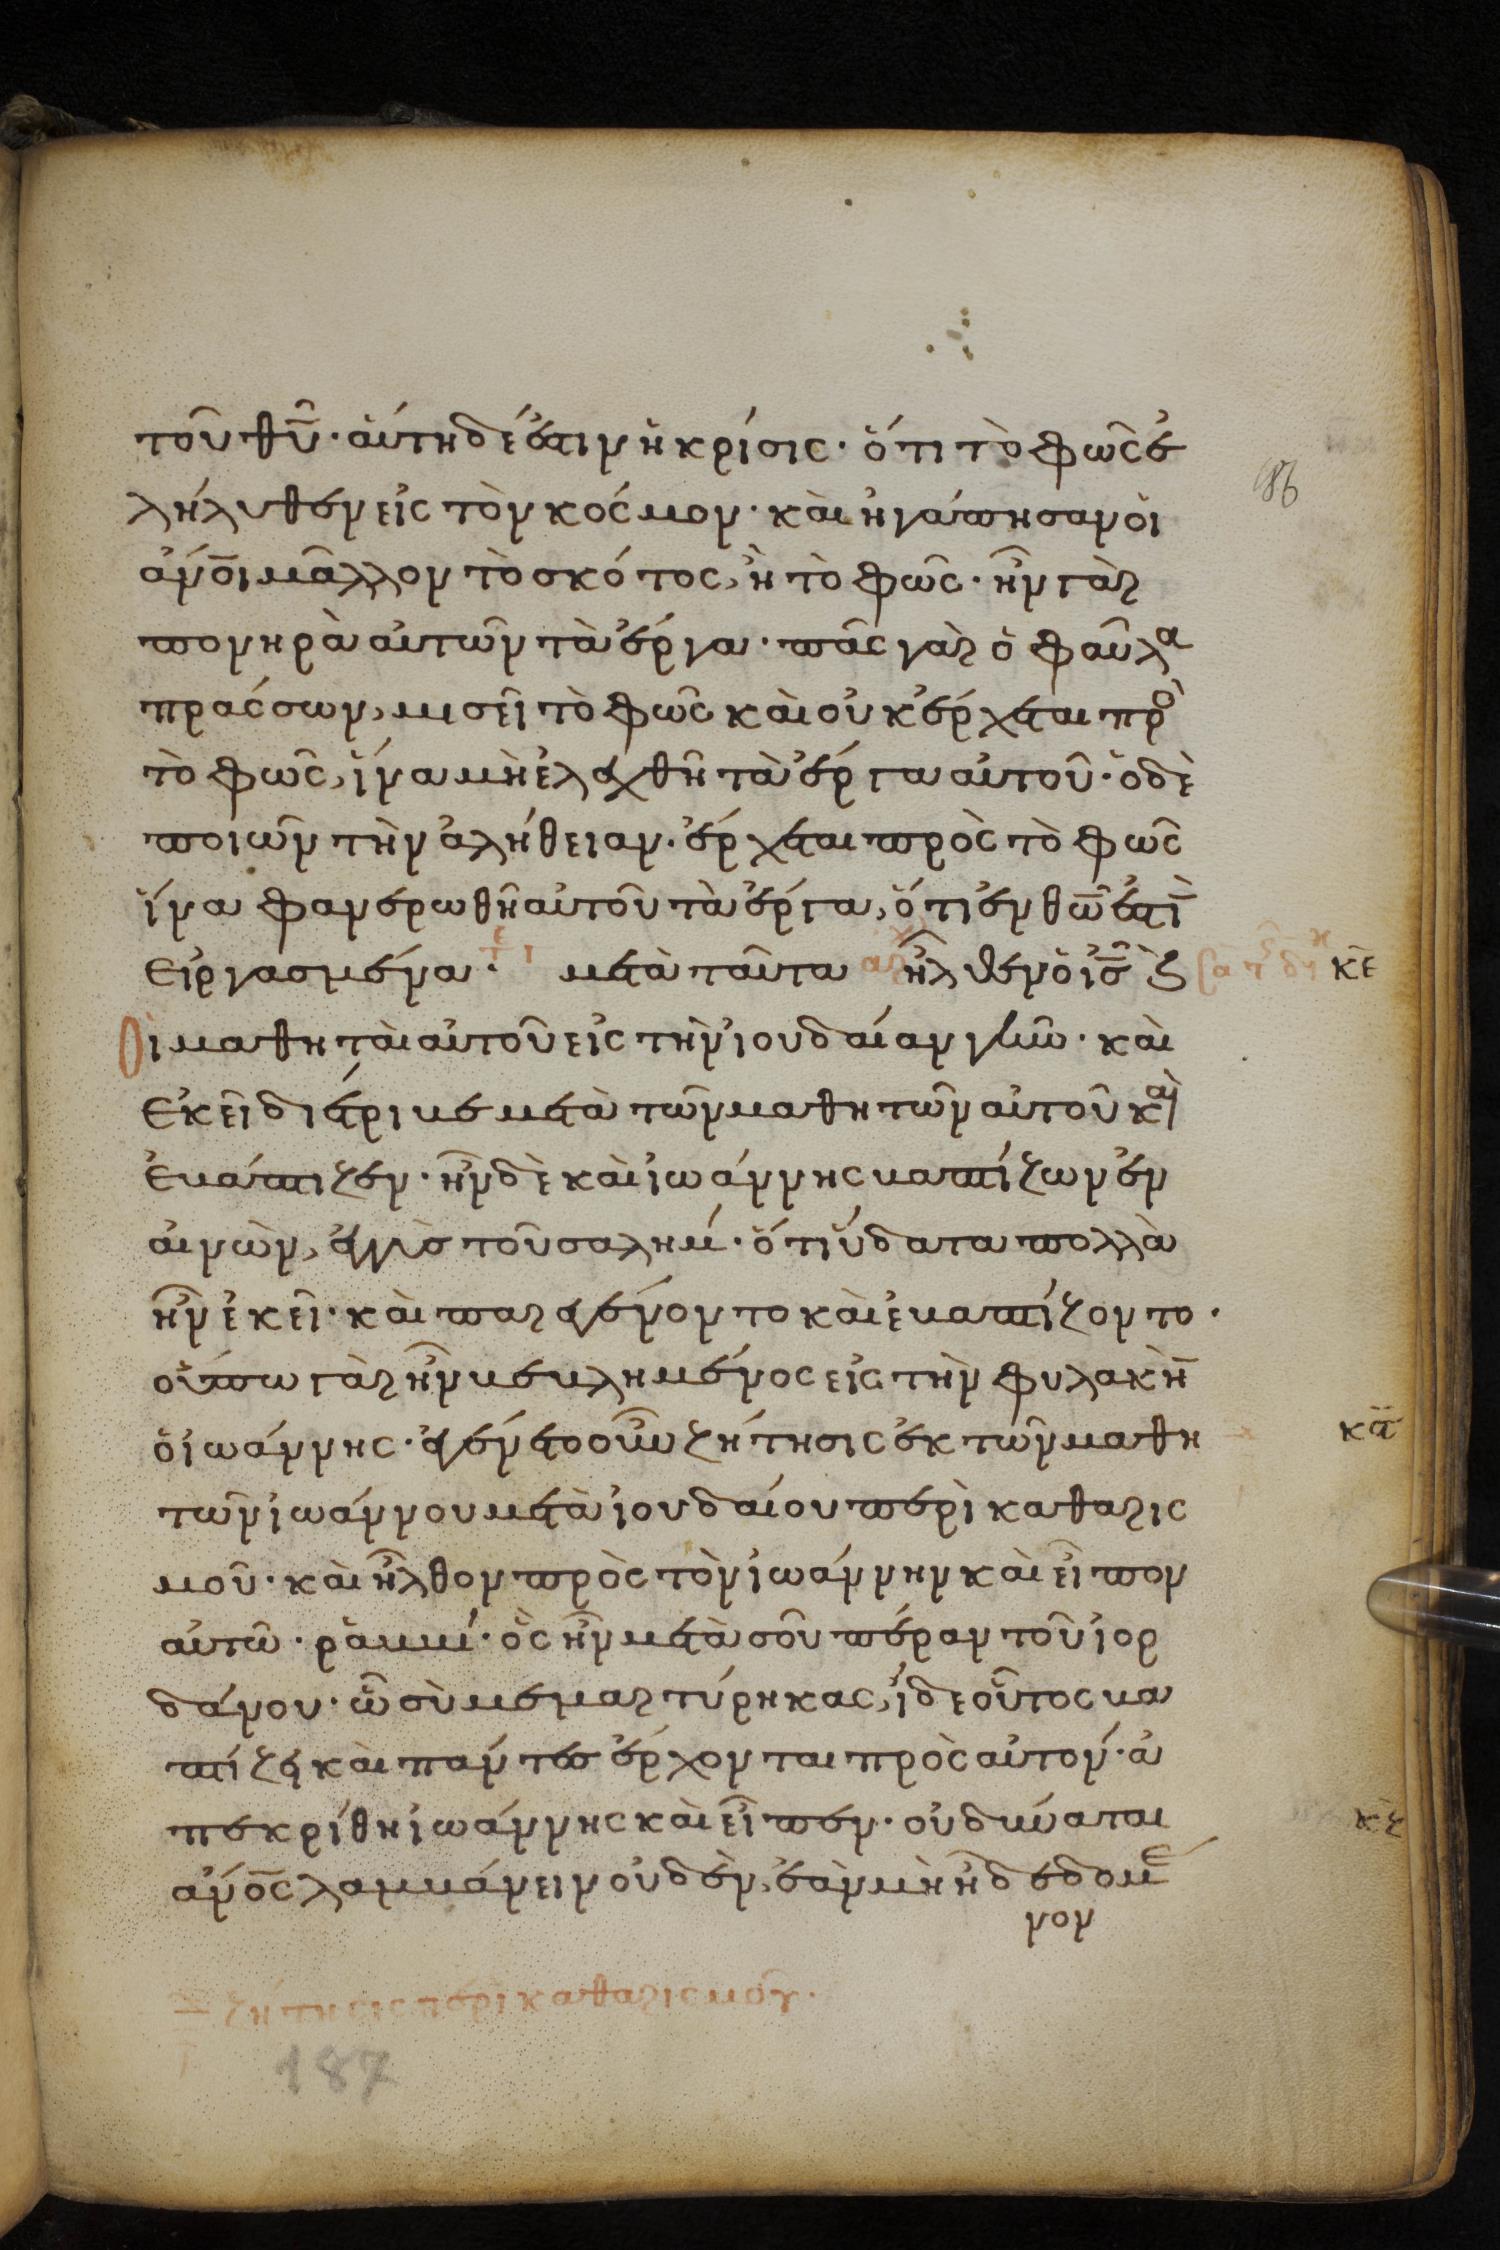 τοῦ θῦ· ἁύτη δέ ἐστιν ἡ κρίσις· ὅτι τὸ φῶς ἐ
λήλυθεν εἰς τὸν κόσμον· καὶ ἠγάπησαν ὁι
ἀνοι μᾶλλον τὸ σκότος, ἢ τὸ φῶς· ἦν γὰρ
πονηρὰ αὐτῶν τὰ ἔργα· πᾶς γὰρ ὁ φαῦλα
πράσσων, μισεῖ τὸ φῶς καὶ οὐκ ἔρχεται πρὸ
τὸ φῶς, ἵνα μὴ ἐλεχθῆ τὰ ἔργα αὐτοῦ· ὁ δὲ
ποιῶν τὴν ἀλήθειαν· ἔρχεται πρὸς τὸ φῶς
ἵνα φανερωθῆ αὐτοῦ τὰ ἔργα, ὅτι ἐν θω ἐστὶ
εἰργασμένα· μετὰ ταῦτα ἦλθεν ὁ ισ κ κε
Οἱ μαθηταὶ αὐτοῦ εἰς τὴν ἰουδαίαν γῆν· καὶ
ἐκεῖ διέτριβε μετὰ τῶν μαθητῶν αὐτοῦ καὶ
ἐβάπτιζεν· ἦν δὲ καὶ ἰωάννης βαπτίζων ἐν
αἰνὼν, ἐγγὺς τοῦ σαλήμ· ὅτι ὕδατα πολλὰ
ἦν ἐκεῖ· καὶ παρεγένοντο καὶ ἐβαπτίζοντο·
οὔπω γὰρ ἦν βεβλημένος εἰς τὴν φυλακὴν
ὁ ἰωάννης· ἐγένετο οὖν ζήτησις ἐκ τῶν μαθη κδ
τῶν ἰωάννου μετὰ ἰουδαίου περὶ καθαρισ
μοῦ· καὶ ἦλθον πρὸς τὸν ἰωάννην καὶ εἶπον
αὐτῶ· ῥαββί· ὃς ἦν μετὰ σοῦ πέραν τοῦ ἰορ
δάνου· ὧ σὺ μεμαρτύρηκας, ἴδε οὗτος βα
πτίζει καὶ πάντες ἔρχονται πρὸς αὐτόν· ἀ
πεκρίθη ἰωάννης καὶ εἶπεν· οὐ δύναται κε
ἀνος λαμβάνειν οὐδὲν, ἐὰν μὴ ἦ δεδομέ
νον
ζήτησις περὶ καθαρισμοῦ·
187